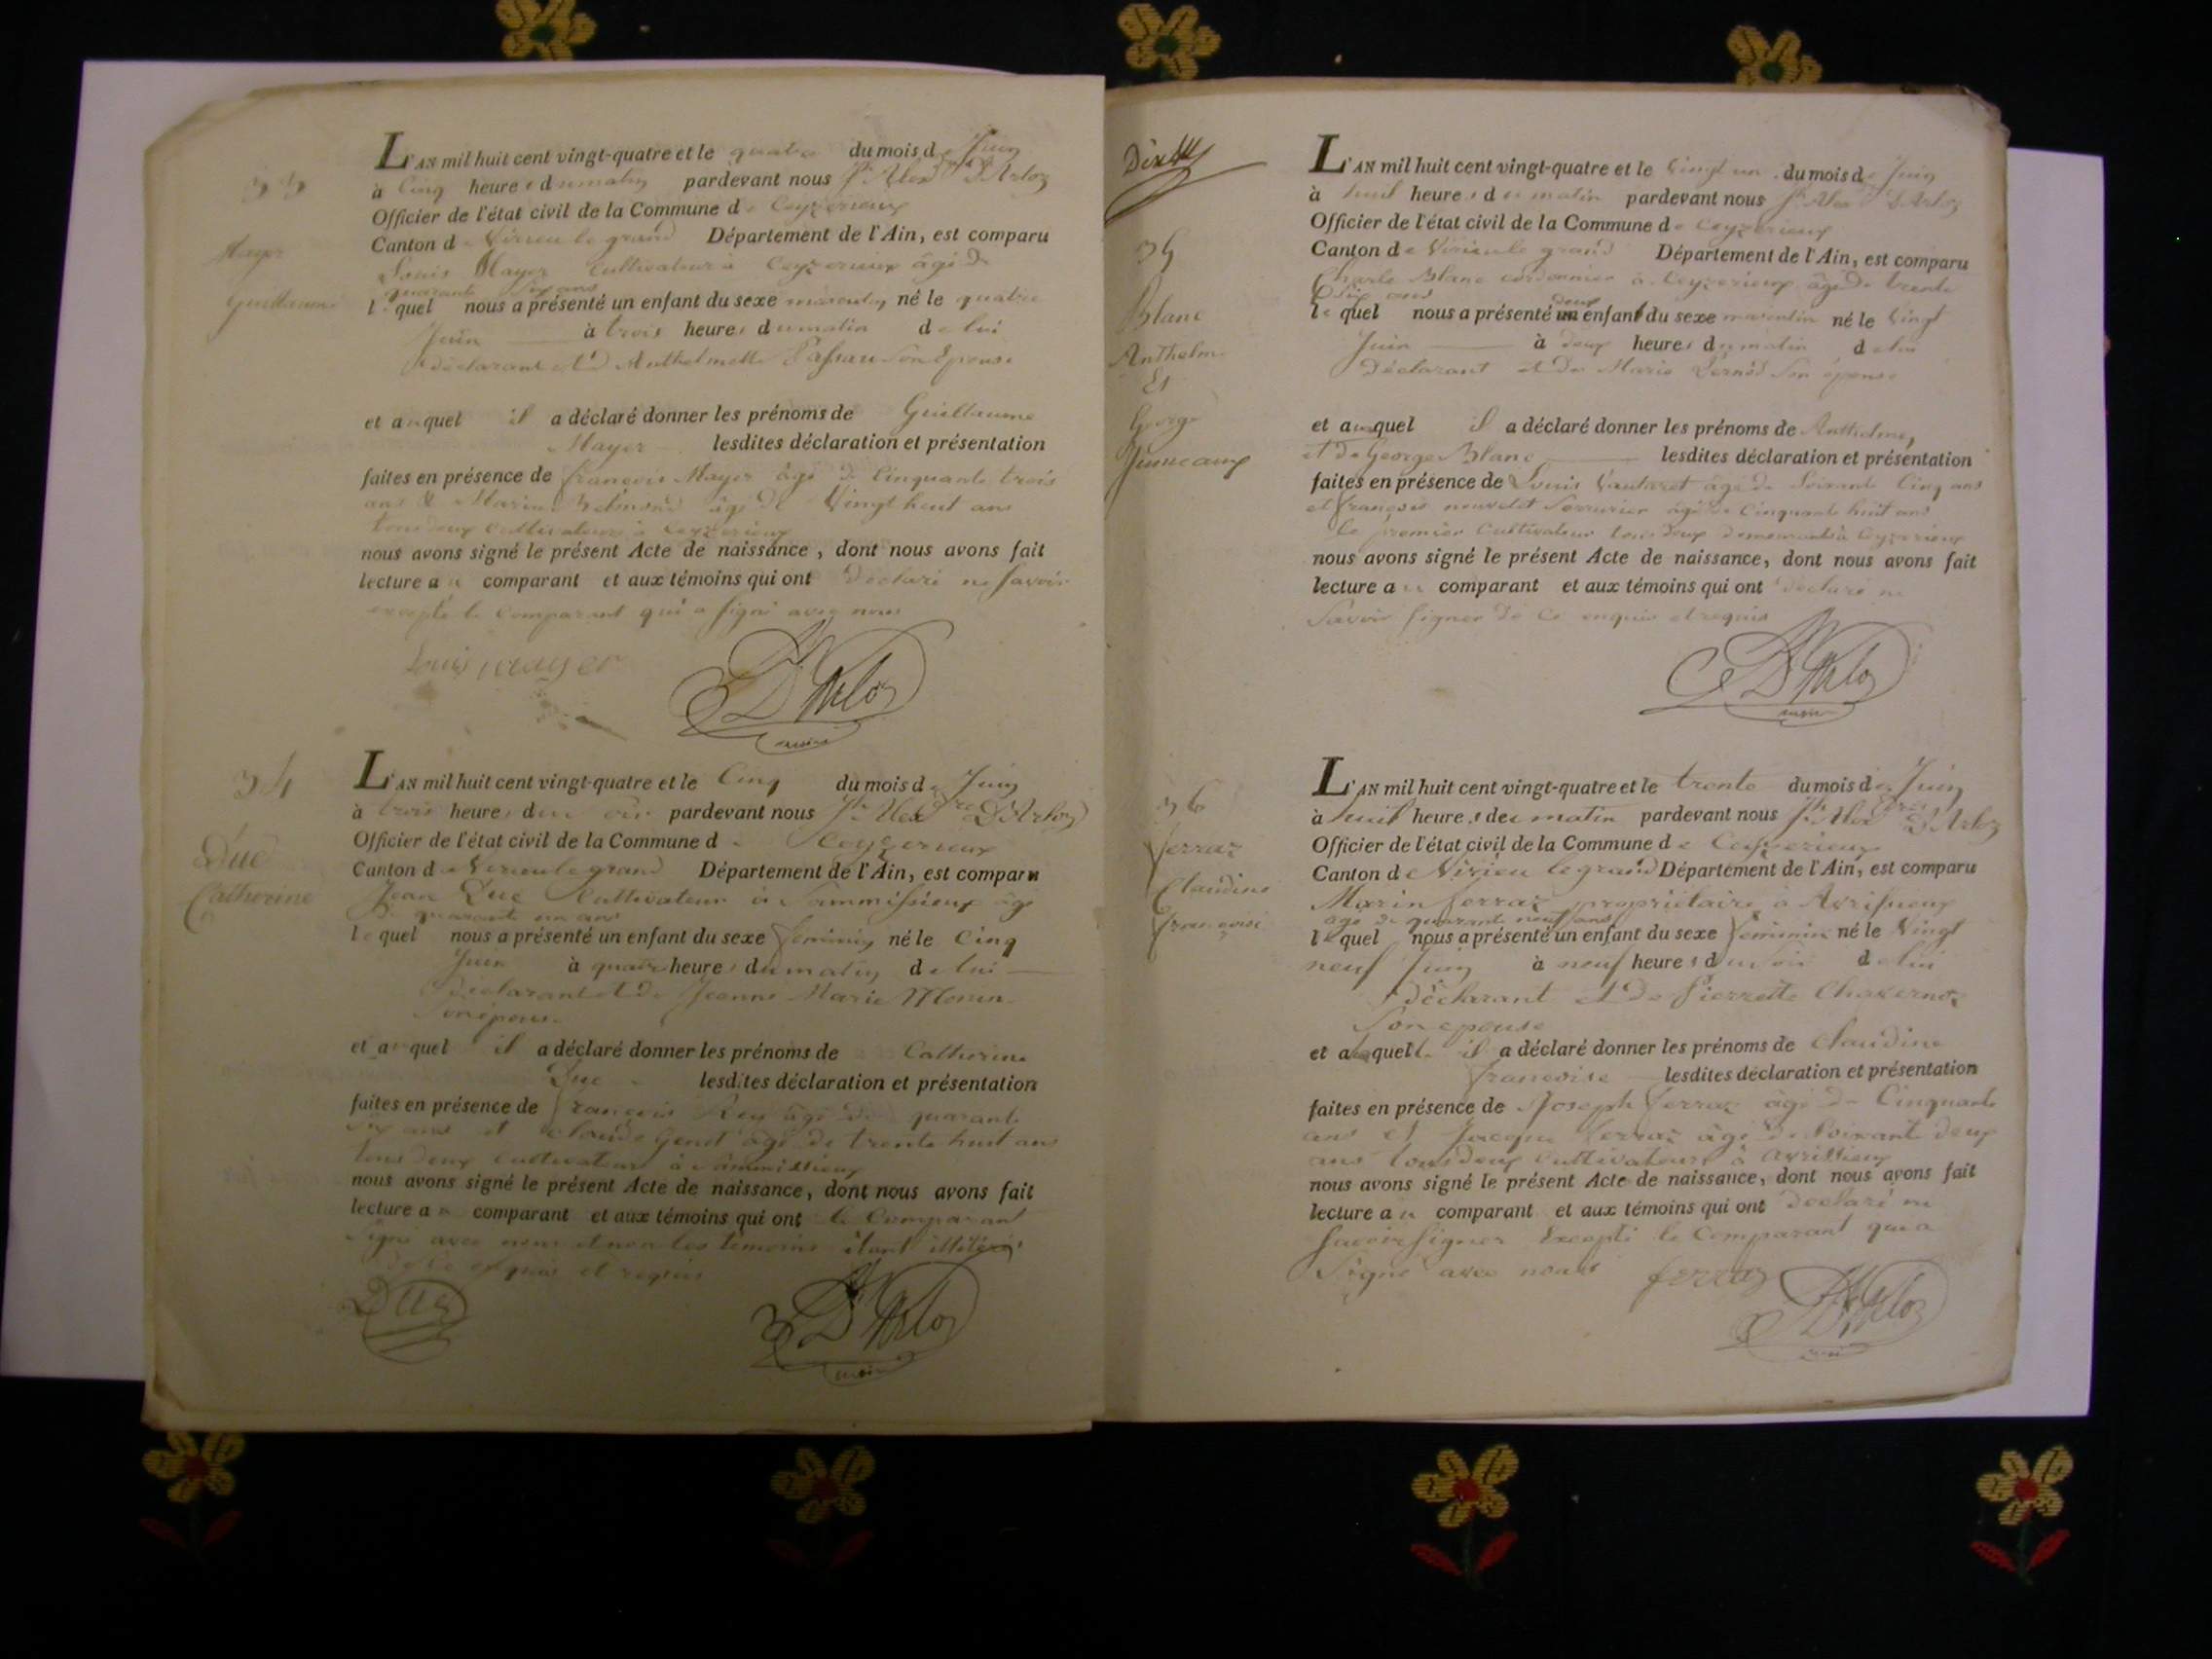 33
Mayer
Guillaume
L'AN mil huit cent vingt-quatre et le quatre du mois de Juin
à cinq heures du matin pardevant nous Jh Alexdre D'Arloz
Officier de l'état civil de la Commune de Ceyzerieux
Canton de Virieu le grand Département de l'Ain, est comparu
Louis Mayer Cultivateur à Ceyzerieux âgé de
quarante six ans
lequel nous a présenté un enfant du sexe masculin né le quatre
Juin à trois heures du matin de lui
déclarant et d'Anthelmette son Epouse
et auquel il a déclaré donner les prénoms de Guillaume
Mayer lesdites déclaration et présentation
faites en présence de françois Mayer âgé de Cinquante trois
ans & Marin âgé de Vingt heut ans
tous deux cultivateurs à Ceyzerieux
nous avons signé le présent Acte de naissance, dont nous avons fait
lecture au comparant et aux témoins qui ont déclaré ne savoir
excepté le comparant qui a signé avec nous
Louis mayer
D'Arloz
maire
34
Duc
Catherine
L'AN mil huit cent vingt-quatre et le Cinq du mois de Juin
à trois heures du soir pardevant nous Jh Alexdre D'Arloz
Officier de l'état civil de la Commune de Ceyzerieux
Canton de Virieu le grand Département de l'Ain, est comparu
Jean Duc Cultivateur à Sammissieux âgé
de quarante un ans
lequel nous a présenté un enfant du sexe feminin né le Cinq
Juin à quatre heures du matin de lui
déclarant et de Jeanne Marie Monin
son épouse
et auquel il a déclaré donner les prénoms de Catherine
Duc lesdites déclaration et présentation
faites en présence de françois Rey âgé de quarante
six ans et Claude Genet âgé de trente huit ans
tous deux cultivateurs à Sammissieux
nous avons signé le présent Acte de naissance, dont nous avons fait
lecture au comparant et aux témoins qui ont le Comparant
signé avec nous et non les témoins étant illitérés
de ce enquis et requis
Duc
D'Arloz
maire
Dix
35
Blanc
Anthelme
Et
George
Jumeaux
L'AN mil huit cent vingt-quatre et le Vingt un du mois de Juin
à huit heures du matin pardevant nous Jh Alexdre D'Arloz
Officier de l'état civil de la Commune de Ceyzerieux
Canton de Virieu le grand Département de l'Ain, est comparu
Charle Blanc cordonnier à Ceyzerieux âgé de trente
six ans
lequel nous a présenté un deux enfant du sexe masculin né le Vingt
Juin à deux heures du matin de lui
Déclarant et De Marie Son épouse
et auxquel il a déclaré donner les prénoms de Anthelme,
et de George Blanc lesdites déclaration et présentation
faites en présence de Louis Vautaret âgé de Soixante Cinq ans
et françois Serrurier âgé de Cinquante huit ans
le premier Cultivateur tous deux demeurants à Ceyzerieux
nous avons signé le présent Acte de naissance, dont nous avons fait
lecture au comparant et aux témoins qui ont déclaré ne
savoir signer de ce enquis et requis
D'Arloz
maire
36
ferraz
Claudine
françoise
L'AN mil huit cent vingt-quatre et le trente du mois de Juin
à huit heures du matin pardevant nous Jh Alexdre D'Arloz
Officier de l'état civil de la Commune de Ceyzerieux
Canton de Virieu le grand Département de l'Ain, est comparu
Marin ferraz propriétaire à Avrissieux
âgé de quarante neuf ans
lequel nous a présenté un enfant du sexe feminin né le Vingt
neuf Juin à neuf heures du soir de lui
déclarant et de Pierrette Chavernoz
Son epouse
et alaquelle il a déclaré donner les prénoms de Claudine
françoise lesdites déclaration et présentation
faites en présence de Joseph ferraz âgé de Cinquante
ans et Jacque ferraz âgé de Soixante deux
ans tous deux cultivateurs à avrissieux
nous avons signé le présent Acte de naissance, dont nous avons fait
lecture au comparant et aux témoins qui ont déclaré ne
Savoir signer Excepté le Comparant qui a
Signé avec nous ferraz
D'Arloz
maire